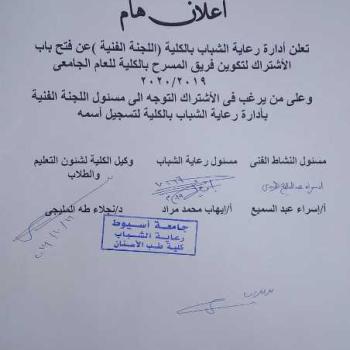 اعلان هام
تعلن أدارة رعاية الشباب بالكلية (اللجنة الفنية )عن فتح باب
الأشتراك لتكوين فريق المسرح بالكلية للعام الجامعى
٢٠٢٠/٢٠١٩
وعلى من يرغب فى الأشتراك التوجه الى مسئول اللجنة الفنية
بأدارة رعاية الشباب بالكلية لتسجيل أسمه
مسئول النشاط الفنى
مسئول رعاية الشباب
وكيل الكلية لشئون التعليم
والطلاب
أ/إسراء عبد السميع
أ/إيهاب محمد مراد
د/نجلاء طه المليجى
جامعة أسيوط
رعاية الشباب
كلية طب الأسنان